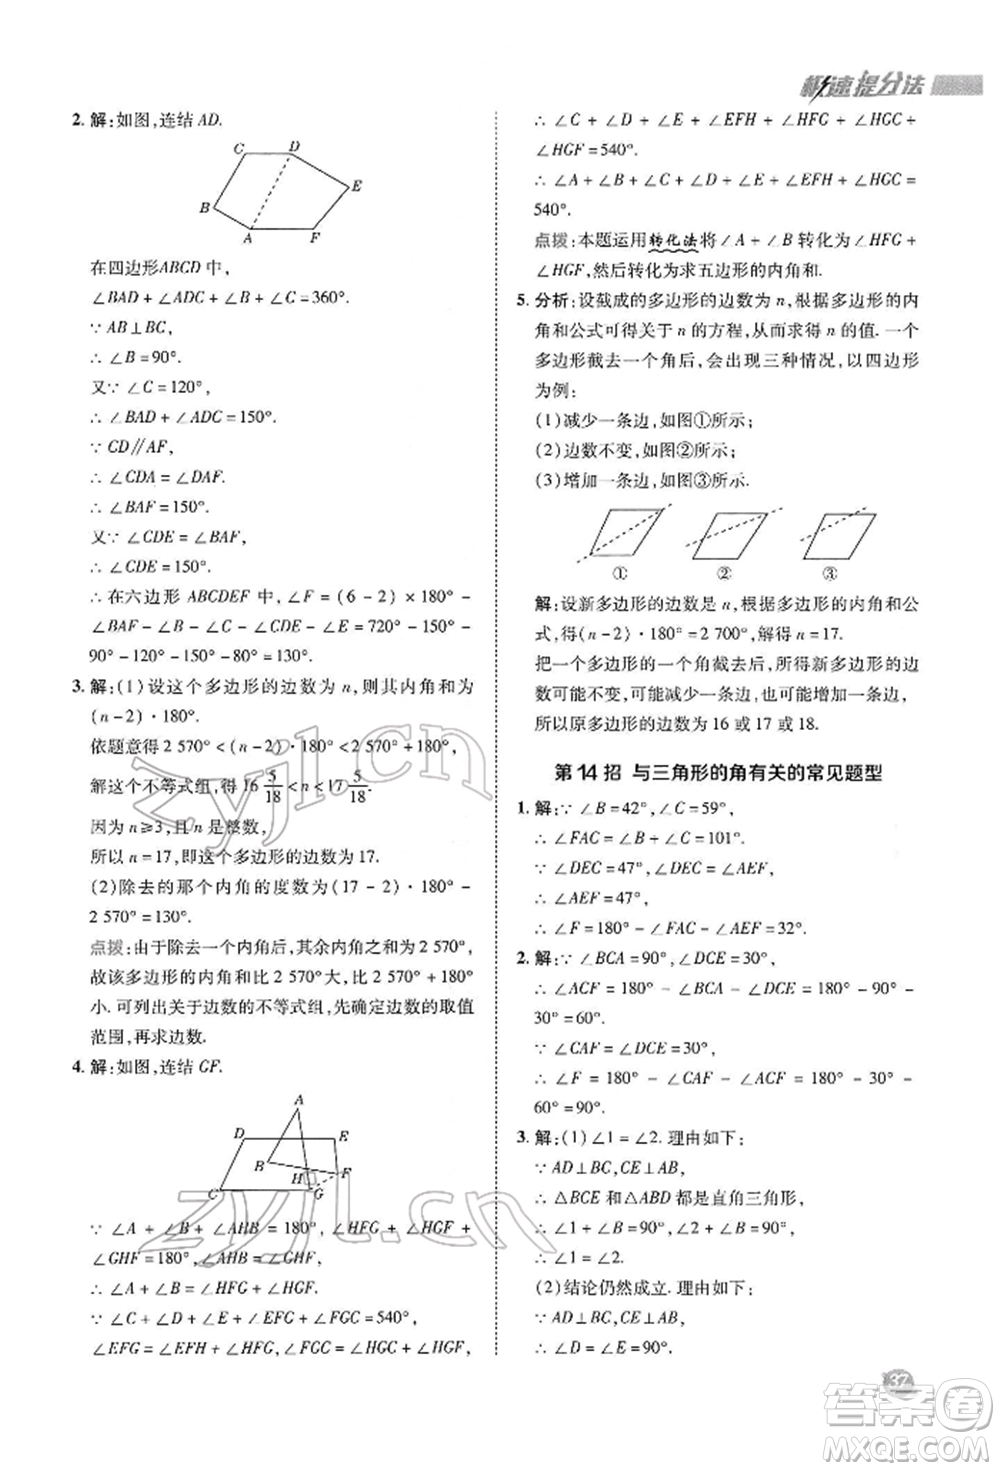 极速提分法
2. 解:如图,连结 AD.
C D E B A F
在四边形ABCD 中,
∠BAD + ∠ADC + ∠B + ∠C = 360°.
∵ AB⊥BC,
∴ ∠B = 90°.
又∵ ∠C = 120°,
∴ ∠BAD + ∠ADC = 150°.
∵ CD∥AF,
∴ ∠CDA = ∠DAF.
∴ ∠BAF = 150°.
又∵ ∠CDE = ∠BAF,
∴ ∠CDE = 150°.
∴ 在六边形 ABCDEF 中, ∠F = (6 - 2) × 180° -
∠BAF - ∠B - ∠C - ∠CDE - ∠E = 720° - 150° -
90° - 120° - 150° - 80° = 130°.
3. 解:(1)设这个多边形的边数为 n,则其内角和为
(n - 2)·180°.
依题意得 2 570° < (n - 2)·180° < 2 570° + 180°,
解这个不等式组,得 16 5/18 < n < 17 5/18.
因为 n ≥ 3,且 n 是整数,
所以 n = 17,即这个多边形的边数为 17.
(2)除去的那个内角的度数为(17 - 2)·180° -
2 570° = 130°.
点拨:由于除去一个内角后,其余内角之和为 2 570°,
故该多边形的内角和比 2 570°大,比 2 570° + 180°
小. 可列出关于边数的不等式组,先确定边数的取值
范围,再求边数.
4. 解:如图,连结 GF.
A D E B H F C G
∵ ∠A + ∠B + ∠AHB = 180°, ∠HFG + ∠HGF +
∠GHF = 180°, ∠AHB = ∠GHF,
∴ ∠A + ∠B = ∠HFG + ∠HGF.
∵ ∠C + ∠D + ∠E + ∠EFG + ∠FGC = 540°,
∠EFG = ∠EFH + ∠HFG, ∠FGC = ∠HGF + ∠HGC,
∴ ∠C + ∠D + ∠E + ∠EFH + ∠HFG + ∠HGC +
∠HGF = 540°.
∴ ∠A + ∠B + ∠C + ∠D + ∠E + ∠EFH + ∠HGC =
540°.
点拨:本题运用转化法将∠A + ∠B 转化为∠HFG +
∠HGF,然后转化为求五边形的内角和.
5. 分析:设截成的多边形的边数为 n,根据多边形的内
角和公式可得关于 n 的方程,从而求得 n 的值. 一个
多边形截去一个角后,会出现三种情况,以四边形
为例:
(1)减少一条边,如图①所示;
(2)边数不变,如图②所示;
(3)增加一条边,如图③所示.
① ② ③
解:设新多边形的边数是 n,根据多边形的内角和公
式,得(n - 2)·180° = 2 700°,解得 n = 17.
把一个多边形的一个角截去后,所得新多边形的边
数可能不变,可能减少一条边,也可能增加一条边,
所以原多边形的边数为 16 或 17 或 18.
第 14 招 与三角形的角有关的常见题型
1. 解:∵ ∠B = 42°, ∠C = 59°,
∴ ∠FAC = ∠B + ∠C = 101°.
∵ ∠DEC = 47°, ∠DEC = ∠AEF,
∴ ∠AEF = 47°,
∴ ∠F = 180° - ∠FAC - ∠AEF = 32°.
2. 解:∵ ∠BCA = 90°, ∠DCE = 30°,
∴ ∠ACF = 180° - ∠BCA - ∠DCE = 180° - 90° -
30° = 60°.
∵ ∠CAF = ∠DCE = 30°,
∴ ∠F = 180° - ∠CAF - ∠ACF = 180° - 30° -
60° = 90°.
3. 解:(1)∠1 = ∠2. 理由如下:
∵ AD⊥BC,CE⊥AB,
∴ △BCE 和△ABD 都是直角三角形,
∴ ∠1 + ∠B = 90°, ∠2 + ∠B = 90°,
∴ ∠1 = ∠2.
(2)结论仍然成立. 理由如下:
∵ AD⊥BC,CE⊥AB,
∴ ∠D = ∠E = 90°.
37
zyjl.cn
zyjl.cn
答案圈
MXQE.COM